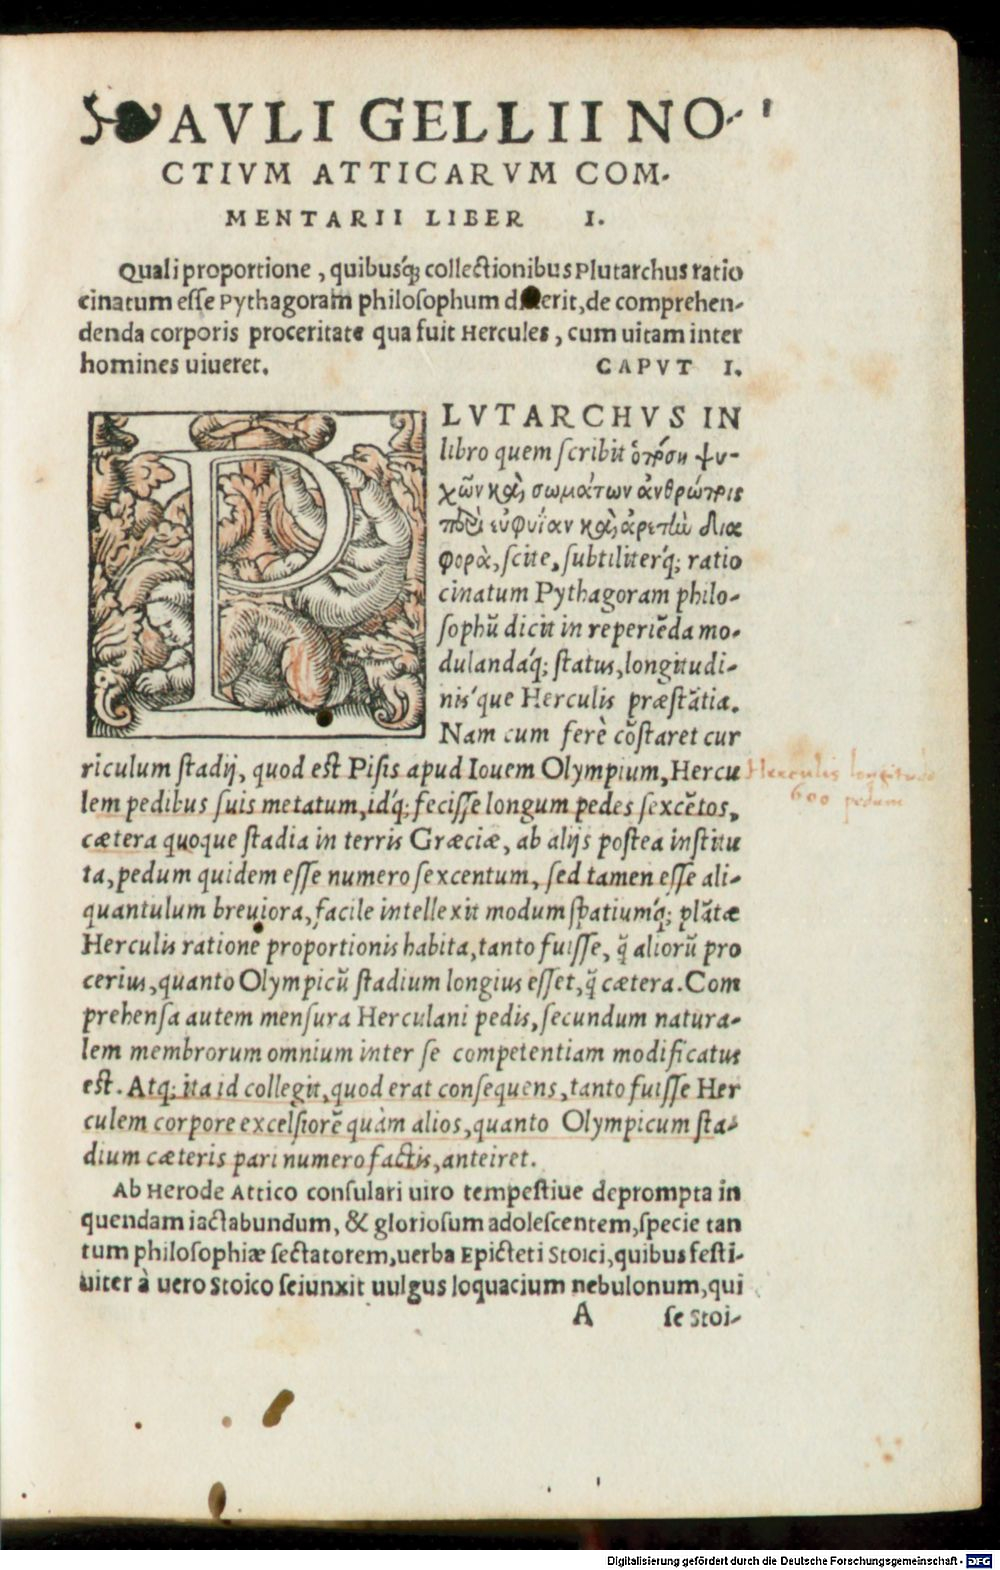 AVLI GELLII NO- 1
CTIVM ATTICARVM COM-
MENTARII LIBER I.
Quali proportione, quibusq́; collectionibus Plutarchus ratio
cinatum esse Pythagoram philosophum erit, de comprehen-
denda corporis proceritate qua fuit Hercules, cum uitam inter
homines uiueret. CAPVT I.
PLVTARCHVS IN
libro quem scribit ὁπόση ψυ-
χῶν καὶ σωμάτων ἀνθρώποις
περὶ εὐφυΐαν καὶ ἀρετὴν δια
φορὰ, scite, subtiliterq́; ratio
cinatum Pythagoram philo-
sophū dicit in reperiēda mo-
dulandaq́; status, longitudi-
nis´que Herculis præstātia.
Nam cum ferè cōstaret cur
riculum stadij, quod est Pisis apud Iouem Olympium, Hercu
lem pedibus suis metatum, idq́; fecisse longum pedes sexcētos,
cætera quoque stadia in terris Græciæ, ab alijs postea institu
ta, pedum quidem esse numero sexcentum, sed tamen esse ali-
quantulum breuiora, facile intellexit modum spatiumq́; plātæ
Herculis ratione proportionis habita, tanto fuisse, q̃ aliorū pro
cerius, quanto Olympicū stadium longius esset, q̃ cætera. Com
prehensa autem mensura Herculani pedis, secundum natura-
lem membrorum omnium inter se competentiam modificatus
est. Atq; ita id collegit, quod erat consequens, tanto fuisse Her
culem corpore excelsiorē quàm alios, quanto Olympicum sta-
dium cæteris pari numero factis, anteiret.
Herculis longitudo
600 pedum
Ab Herode Attico consulari uiro tempestiue deprompta in
quendam iactabundum, & gloriosum adolescentem, specie tan
tum philosophiæ sectatorem, uerba Epicteti Stoici, quibus festi-
uiter à uero Stoico seiunxit uulgus loquacium nebulonum, qui
A se Stoi-
Digitalisierung gefördert durch die Deutsche Forschungsgemeinschaft - DFG